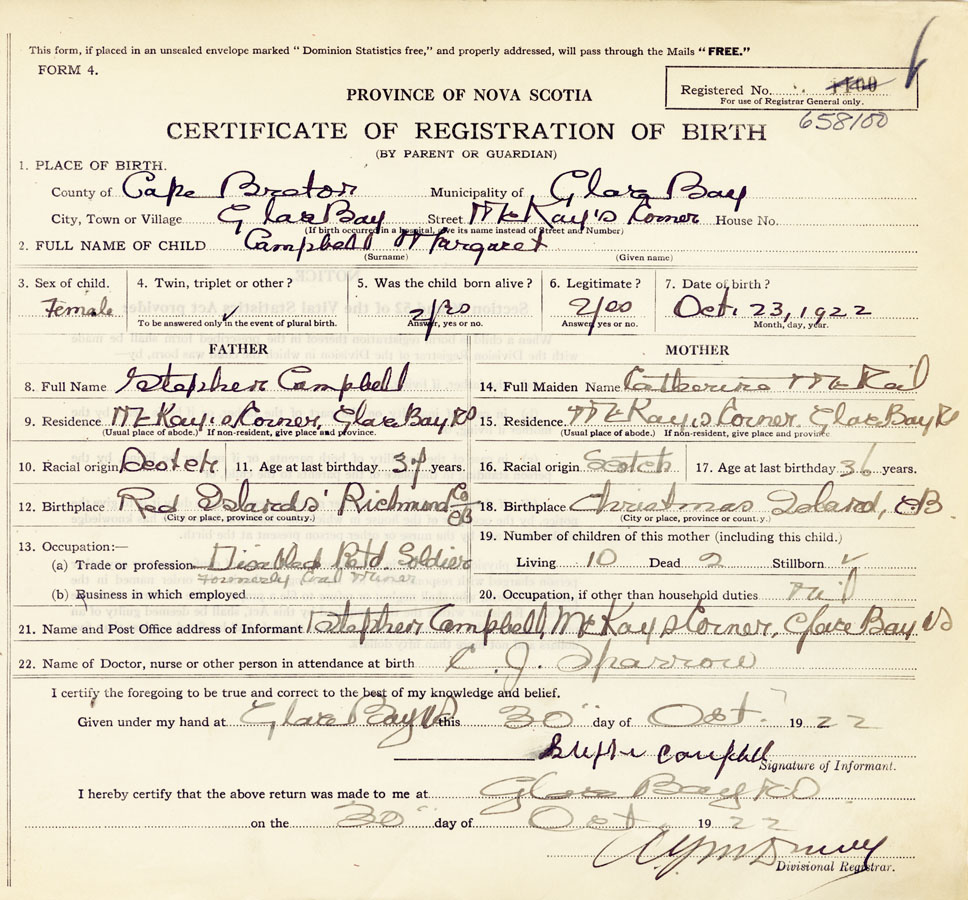 This form, if placed in an unsealed envelope marked "Dominion Statistics free," and properly addressed, will pass through the Mails "FREE."
FORM 4.
Registered No. 1100
For use of Registrar General only.
658100
PROVINCE OF NOVA SCOTIA
CERTIFICATE OF REGISTRATION OF BIRTH
(BY PARENT OR GUARDIAN)
1. PLACE OF BIRTH.
County of Cape Breton Municipality of Glace Bay
City, Town or Village Glace Bay Street McKay's Corner House No.
(If birth occurred in a hospital, give its name instead of Street and Number)
2. FULL NAME OF CHILD Campbell Margaret
(Surname) (Given name)
3. Sex of child. 4. Twin, triplet or other? 5. Was the child born alive? 6. Legitimate? 7. Date of birth?
Female Yes Yes Oct. 23, 1922
To be answered only in the event of plural birth. Answer, yes or no. Answer, yes or no. Month, day, year.
FATHER MOTHER
8. Full Name Stephen Campbell 14. Full Maiden Name Catherine McNeil
9. Residence McKay's Corner, Glace Bay NS 15. Residence McKay's Corner, Glace Bay NS
(Usual place of abode.) If non-resident, give place and province. (Usual place of abode.) If non-resident, give place and province
10. Racial origin Scotch 11. Age at last birthday 37 years. 16. Racial origin Scotch 17. Age at last birthday 36 years.
12. Birthplace Red Islands' Richmond Co CB 18. Birthplace Christmas Island, CB
(City or place, province or country.) (City or place, province or country.)
13. Occupation:— 19. Number of children of this mother (including this child.)
(a) Trade or profession Disabled Retd. Soldier Living 10 Dead 2 Stillborn ✓
formerly Coal Miner
(b) Business in which employed 20. Occupation, if other than household duties nil
21. Name and Post Office address of Informant Stephen Campbell, McKays Corner, Glace Bay NS
22. Name of Doctor, nurse or other person in attendance at birth C. J. Sparrow
I certify the foregoing to be true and correct to the best of my knowledge and belief.
Given under my hand at Glace Bay NS this 30" day of Oct. 1922
Stephen Campbell
Signature of Informant.
I hereby certify that the above return was made to me at Glace Bay NS
on the 30" day of Oct 1922
Divisional Registrar.